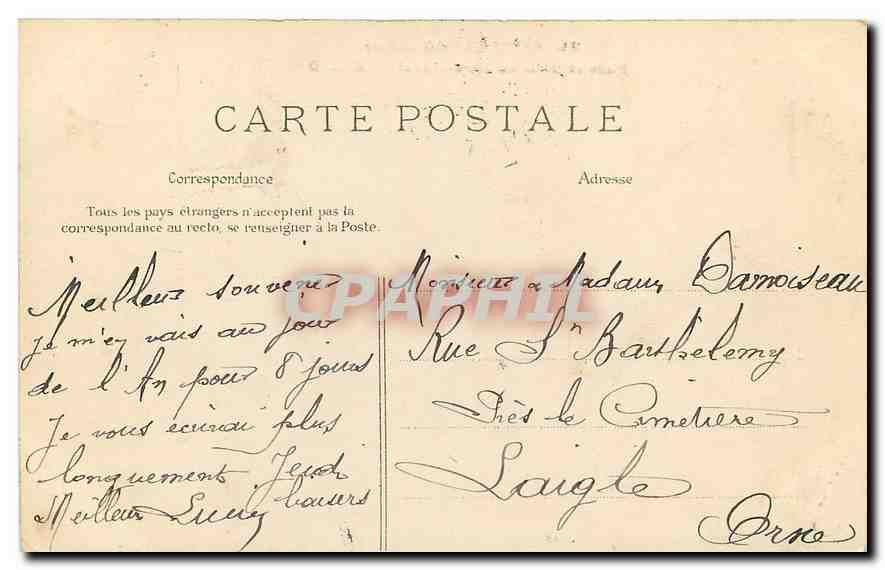 CARTE POSTALE
Correspondance
Adresse
Tous les pays étrangers n'acceptent pas la
correspondance au recto, se renseigner à la Poste.
Meilleur souvenir
Je m'en vais au jour
de l'An pour 8 jours
Je vous écrirai plus
longuement Jeudi
Meilleur baisers
Lucy
Monsieur & Madame Damoiseau
Rue St Barthelemy
Près le Cimetiere
Laigle
Orne
CPAPHIL